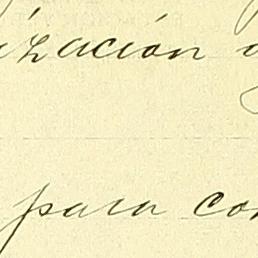 ización
para con